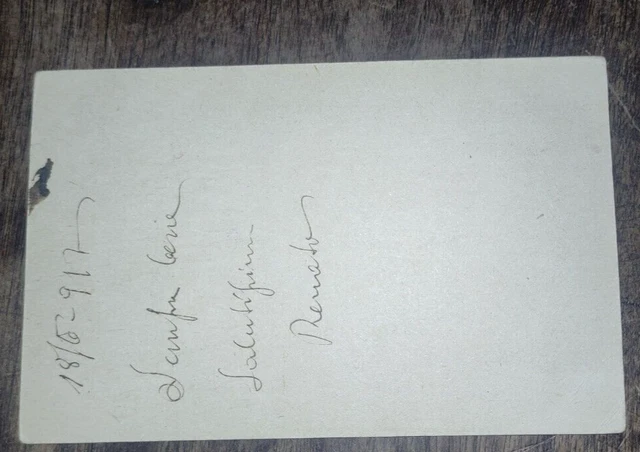 18/6-917
Sempre bene
Saluti firm
Renato